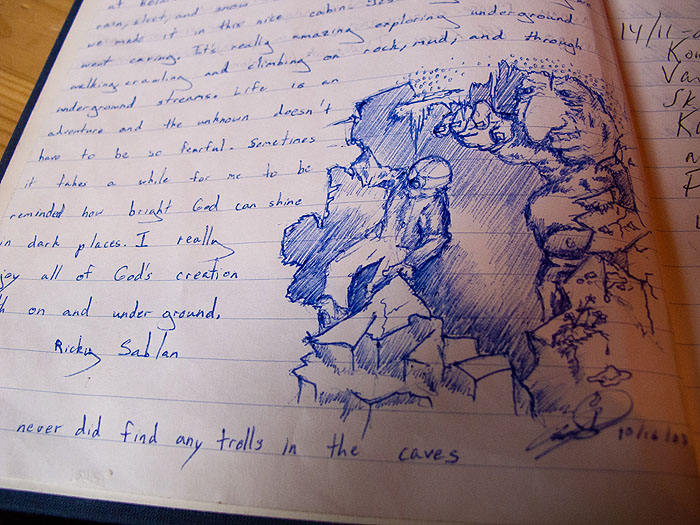 at
rain, sleet, and snow
we made it in this nice cabin.
went caving. It's really amazing exploring underground
walking, crawling and climbing on rock, mud, and through
underground streams. Life is an
adventure and the unknown doesn't
have to be so fearful. Sometimes
it takes a while for me to be
reminded how bright God can shine
in dark places. I really
joy all of God's creation
th on and under ground.
Ricky Sablan
never did find any trolls in the caves
10/16/02
14/11-0
Kou
Va
Sk
K